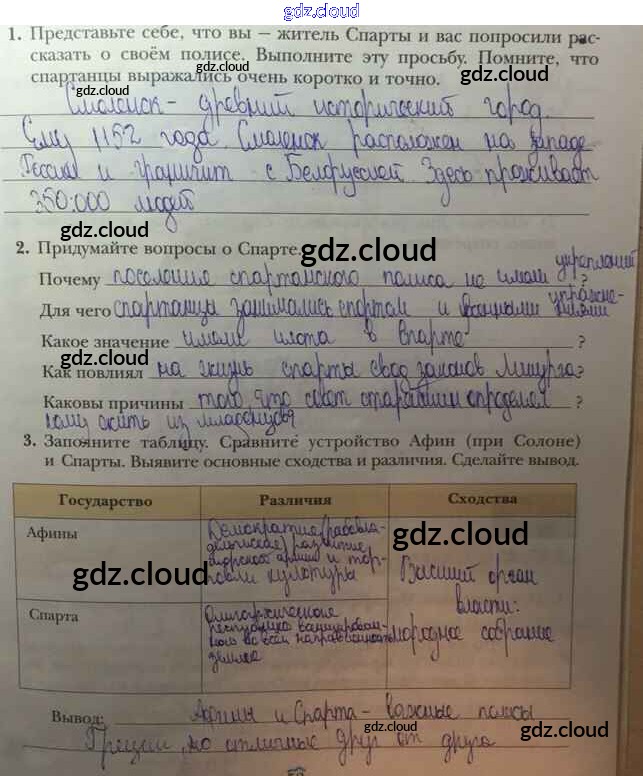 gdz.cloud
1. Представьте себе, что вы — житель Спарты и вас попросили рас-
сказать о своём полисе. Выполните эту просьбу. Помните, что
спартанцы выражались очень коротко и точно.
gdz.cloud
gdz.cloud
Смоленск - древний исторический город.
Ему 1152 года. Смоленск расположен на западе
России и граничит с Белоруссией Здесь проживает
350.000 людей
gdz.cloud
gdz.cloud
2. Придумайте вопросы о Спарте.
Почему поселения спартанского полиса не имели укреплений ?
Для чего спартанцы занимались спортом и военными упражне-
ниями
Какое значение имели илоты в Спарте ?
gdz.cloud
gdz.cloud
Как повлиял на жизнь спарты свод законов Ликурга?
Каковы причины того, что совет старейшин определял ?
кому жить из младенцев
gdz.cloud
3. Заполните таблицу. Сравните устройство Афин (при Солоне)
и Спарты. Выявите основные сходства и различия. Сделайте вывод.
Государство Различия Сходства
gdz.cloud
gdz.cloud
Афины
Демократия (рабовла-
дельческая) развитие
морской армии и тор-
говли культуры
gdz.cloud
gdz.cloud
Высший орган
власти:
народное собрание
Спарта
Олигархическая
республика
во всей
земле
Вывод: Афины и Спарта - важные полисы
Греции, но отличные друг от друга
gdz.cloud
gdz.cloud
gdz.cloud
gdz.cloud